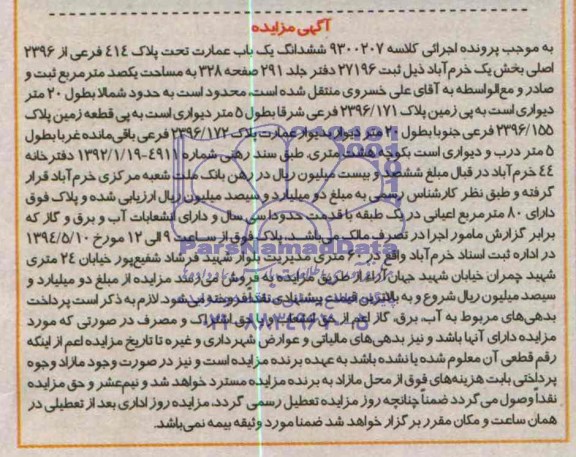 آگهی مزایده
به موجب پرونده اجرائی کلاسه ۹۳۰۰۲۰۷ ششدانگ یک باب عمارت تحت پلاک ٤١٤ فرعی از ۲۳۹۶
اصلی بخش یک خرم‌آباد ذیل ثبت ۲۷۱۹۶ دفتر جلد ۲۹۱ صفحه ۳۲۸ به مساحت یکصد متر مربع ثبت و
صادر و مع‌الواسطه به آقای علی خسروی منتقل شده است، محدود است به حدود شمالا بطول ۲۰ متر
دیواری است به پی زمین پلاک ۲۳۹۶/۱۷۱ فرعی شرقا بطول ۵ متر دیواری است به پی قطعه زمین پلاک
۲۳۹۶/۱۵۵ فرعی جنوبا بطول ۲۰ متر دیوار بدیوار عمارت پلاک ۲۳۹۶/۱۷۲ فرعی باقی‌مانده غربا بطول
۵ متر درب و دیواری است بکوچه هشت متری، طبق سند رهنی شماره ۴۹۱۱-۱۳۹۲/۱/۱۹ دفترخانه
٤٤ خرم‌آباد در قبال مبلغ ششصد و بیست میلیون ریال در رهن بانک ملت شعبه مرکزی خرم‌آباد قرار
گرفته و طبق نظر کارشناس رسمی به مبلغ دو میلیارد و سیصد میلیون ریال ارزیابی شده و پلاک فوق
دارای ۸۰ متر مربع اعیانی در یک طبقه با قدمت حدودا سی سال و دارای انشعابات آب و برق و گاز که
برابر گزارش مامور اجرا در تصرف مالک می‌باشد، پلاک فوق از ساعت ۹ الی ۱۲ مورخ ۱۳۹٤/۵/۱۰
در اداره ثبت اسناد خرم‌آباد واقع در ۶۰ متری مدیریت بلوار شهید فرشاد شفیع‌پور خیابان ۲٤ متری
شهید چمران خیابان شهید جهان‌آراء از طریق مزایده به فروش می‌رسد مزایده از مبلغ دو میلیارد و
سیصد میلیون ریال شروع و به بالاترین قیمت پیشنهادی نقدا فروخته می‌شود. لازم به ذکر است پرداخت
بدهی‌های مربوط به آب، برق، گاز اعم از حق انشعاب و یا حق اشتراک و مصرف در صورتی که مورد
مزایده دارای آنها باشد و نیز بدهی‌های مالیاتی و عوارض شهرداری و غیره تا تاریخ مزایده اعم از اینکه
رقم قطعی آن معلوم شده یا نشده باشد به عهده برنده مزایده است و نیز در صورت وجود مازاد وجوه
پرداختی بابت هزینه‌های فوق از محل مازاد به برنده مزایده مسترد خواهد شد و نیم‌عشر و حق مزایده
نقدا وصول می‌گردد ضمنا چنانچه روز مزایده تعطیل رسمی گردد، مزایده روز اداری بعد از تعطیلی در
همان ساعت و مکان مقرر برگزار خواهد شد ضمنا مورد وثیقه بیمه نمی‌باشد.
ParsNamadData